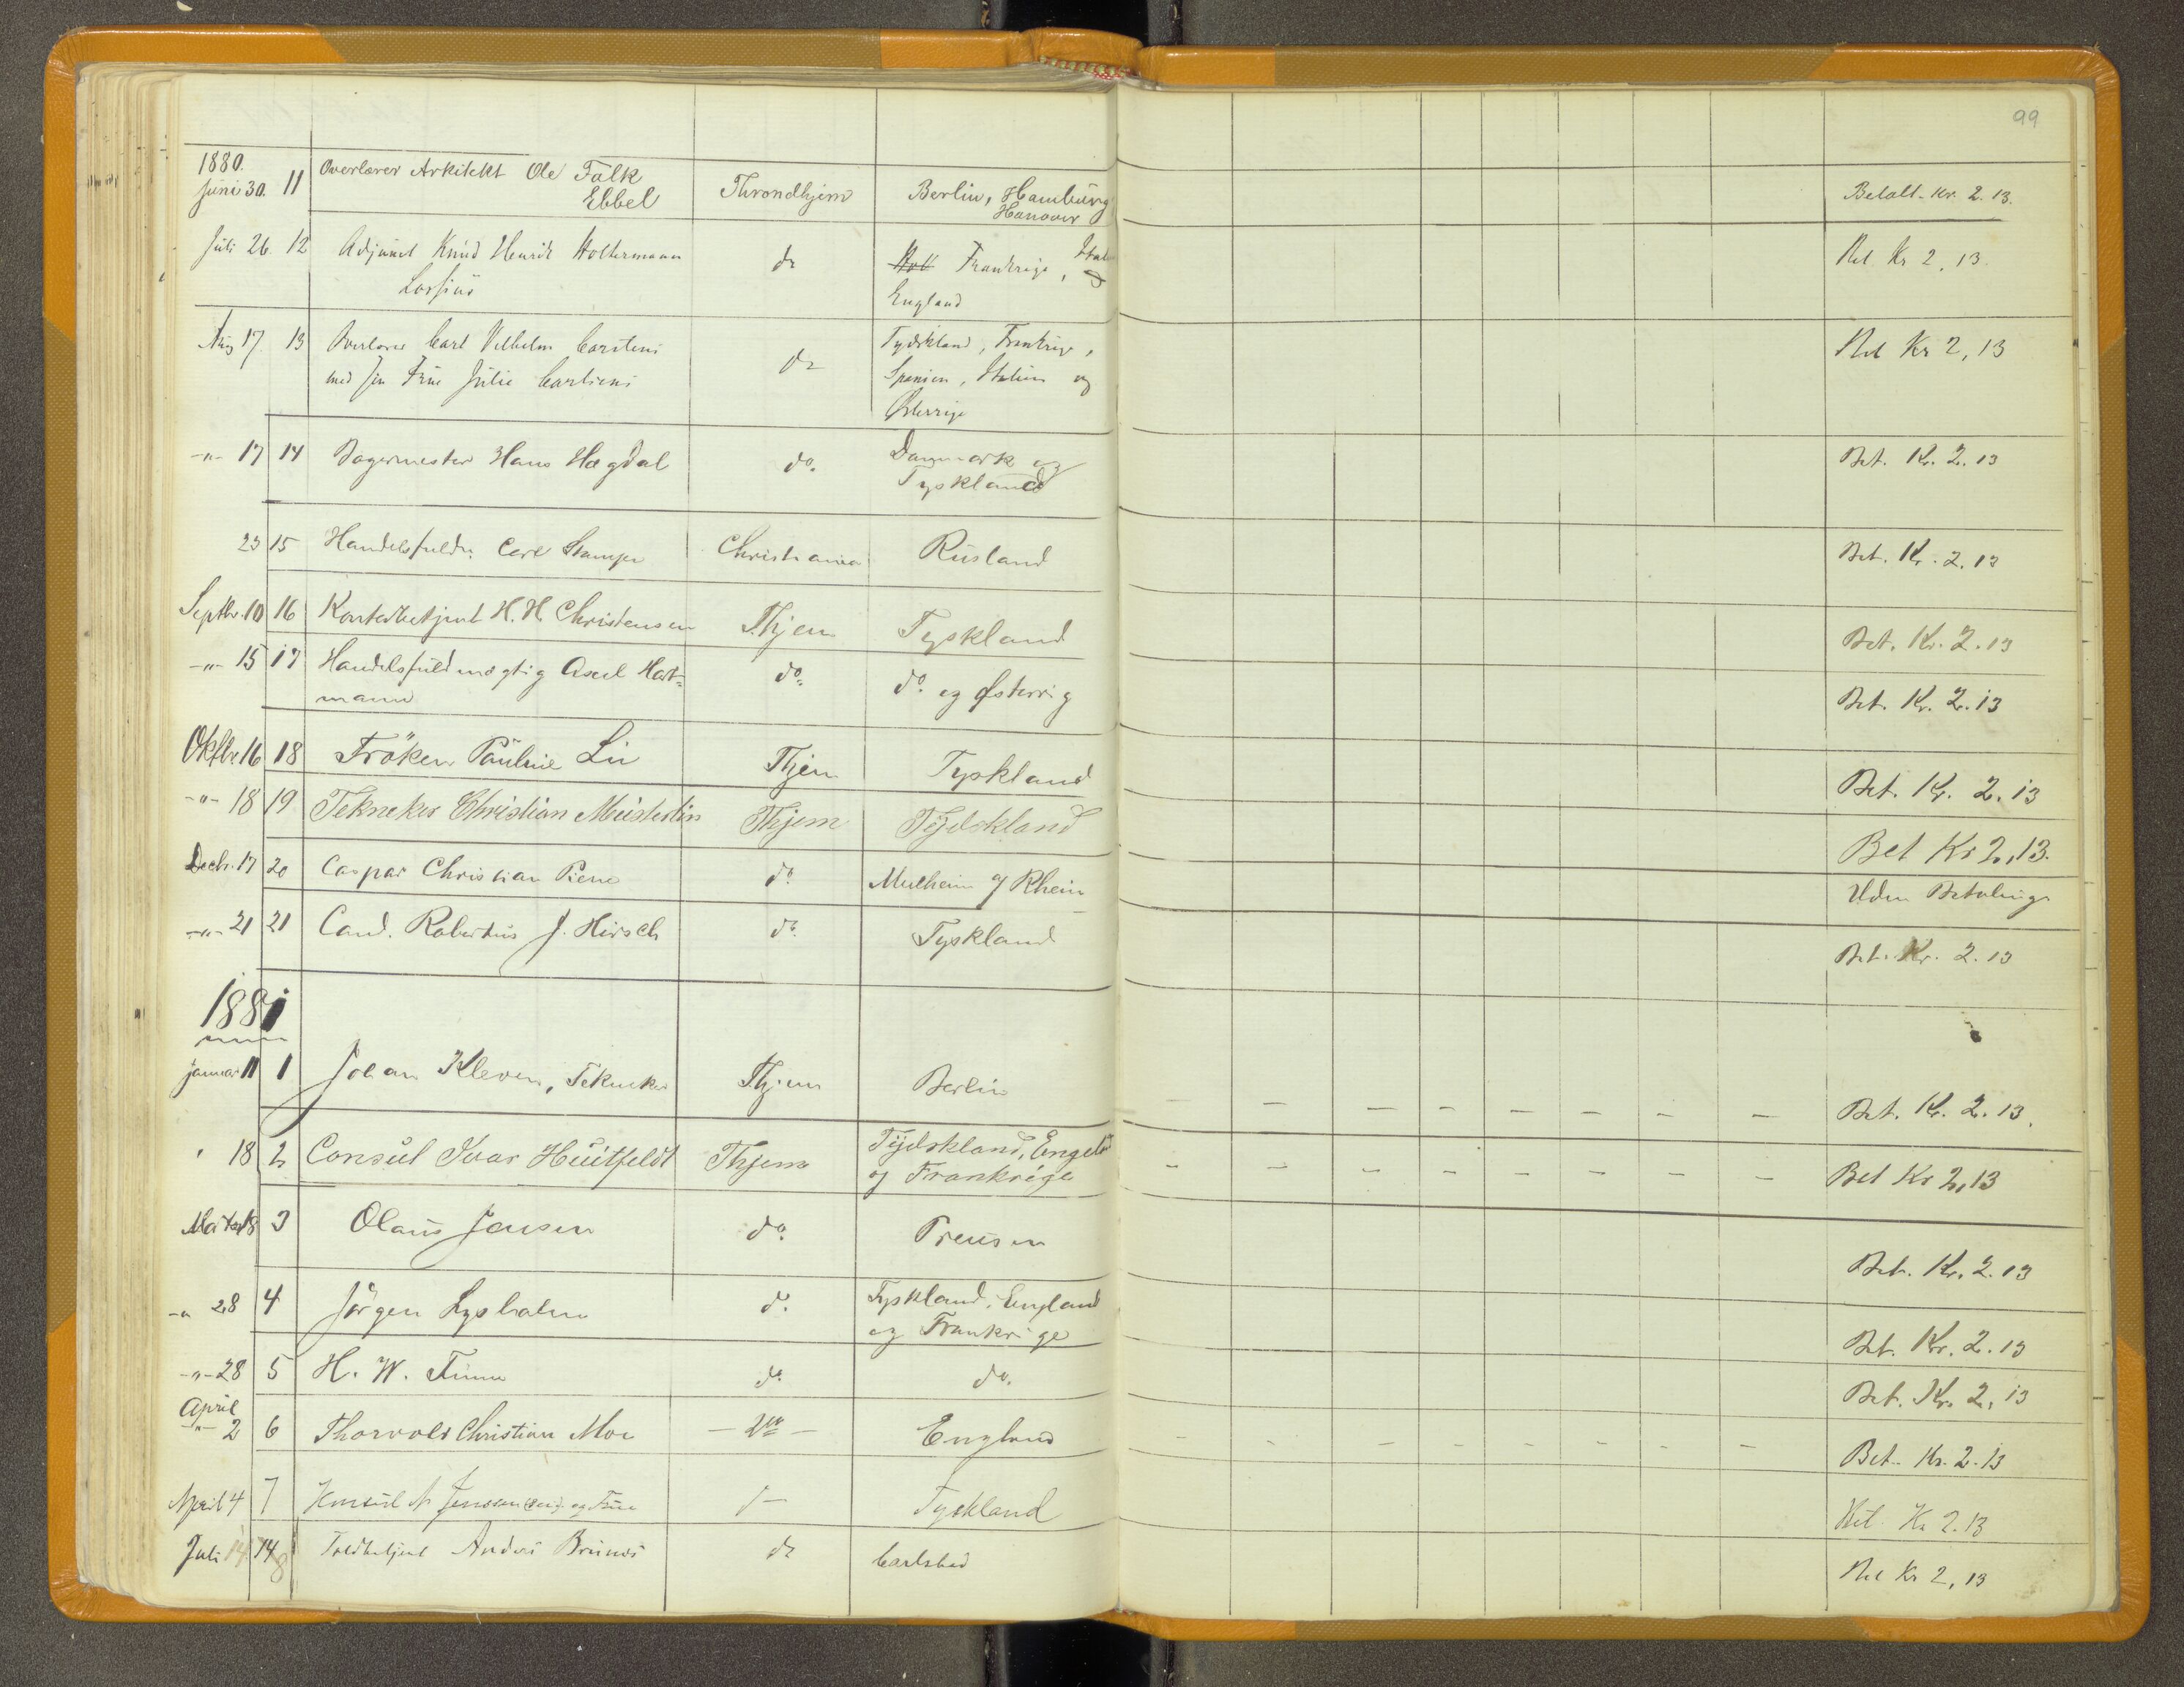 99
1880.
Juni 30. 11 Overlærer Arkitekt Ole Falk Throndhjem Berlin, Hamburg Betalt Kr. 2. 13.
Ebbel Hanover
Juli 26. 12 Adjunct Knud Henrik Holtermann do Frankrige, Ital Bet Kr 2, 13.
England
Aug 17. 13 Overlærer Carl Vilhelm Carstens do Tydskland, Frankrige, Bet Kr 2, 13
med sin Frue Julie Carstens Spanien, Italien og
Østerrige
-"- 17 14 Bagermester Hans Hegdal do. Danmark og Bet. Kr. 2. 13
Tyskland
23 15 Handelsfuldm. Carl Christiania Rusland Bet. Kr. 2. 13
Septbr. 10 16 H. H. Christensen Thjem Tyskland Bet. Kr. 2. 13
-"- 15 17 Handelsfuldmægtig Axel Hart= do. do. og Østerrig Bet. Kr. 2. 13
mann
Oktbr 16 18 Fröken Pauline Lie Thjem Tyskland Bet. Kr. 2. 13
-"- 18 19 Tekneker Christian Thjem Tydskland Bet Kr 2,13.
Decbr. 17 20 Caspar Christian do. Mulheim a/ Rhein Uden Betaling
-"- 21 21 Cand. Robertus J. Hirsch do. Tyskland Bet. Kr. 2. 13
1881
Januar 11 1 Johan Kleven, Tekneker Thjem Berlin - - - - - - - - Bet. Kr. 2. 13.
" 18 2 Consul Ivar Huitfeldt Thjem Tydskland, Engeld - - - - - - - - Bet Kr 2,13
og Frankrige
Marts 18 3 Olaus Jensen do. Preusen Bet. Kr. 2. 13
-" 28 4 Jörgen Lysholm do. Tyskland, England Bet. Kr. 2. 13
og Frankrige
-"- 28 5 H. W. Finne do. do. Bet. Kr. 2, 13
April
-"- 2 6 Thorvald Christian Moe - do - England - - - - - - - - Bet. Kr. 2. 13
April 4 7 Konsul N. Jenssen og Frue Tyskland Bet. Kr 2. 13
Juli 14 14 8 Toldbetjent Anders do Carlsbad Bet Kr 2, 13